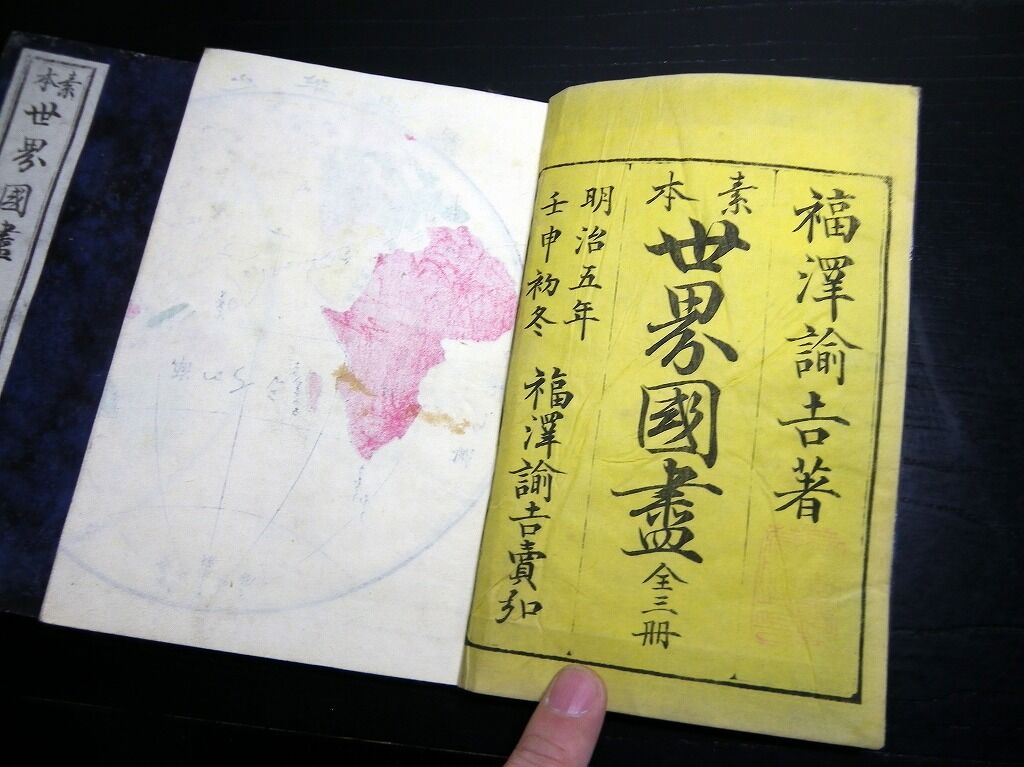 福澤諭吉著
素本
世界國盡
全三冊
明治五年
壬申初冬
福澤諭吉賣弘
素本
世界國盡